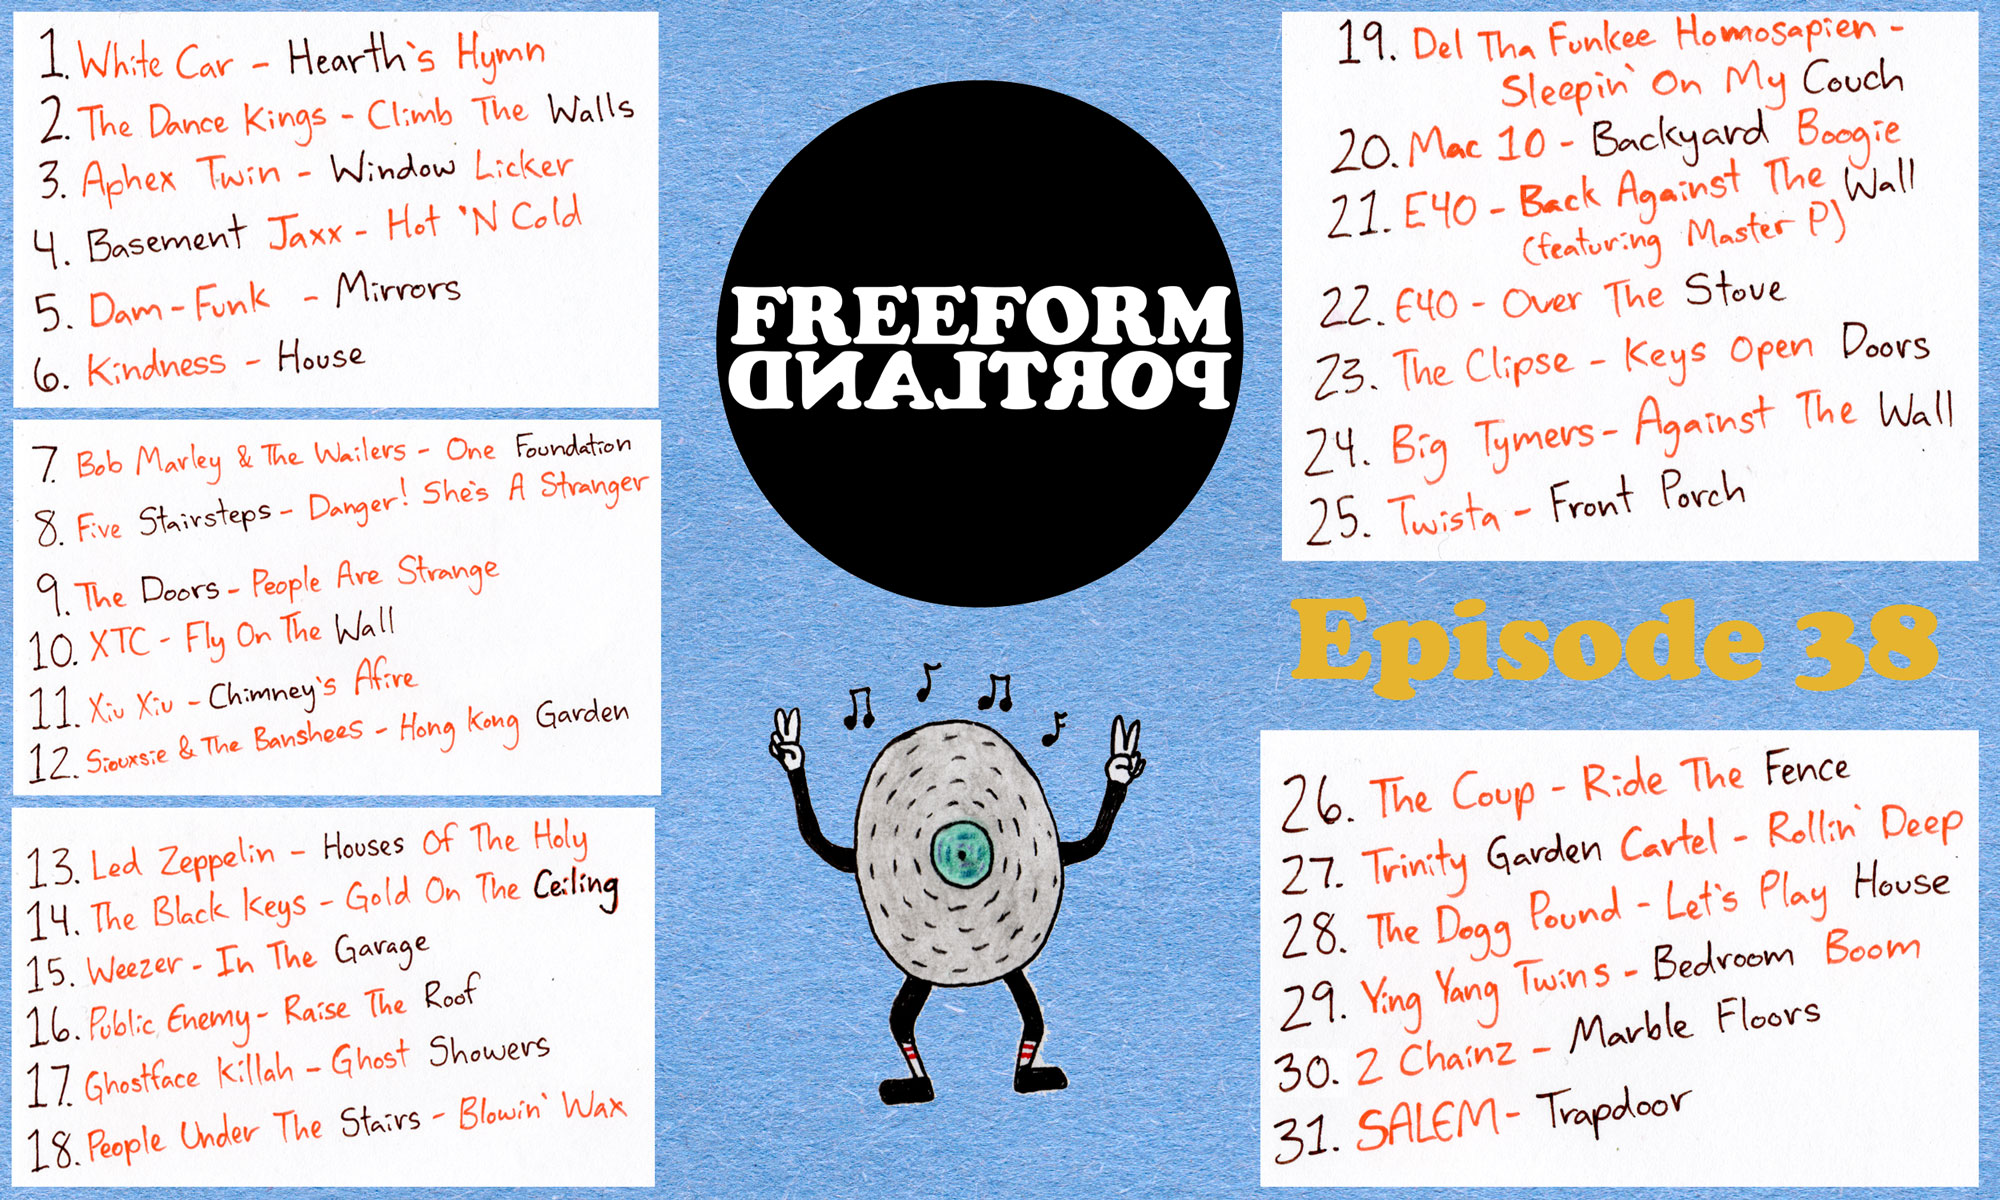 1. White Car - Hearth's Hymn
2. The Dance Kings - Climb The Walls
3. Aphex Twin - Window Licker
4. Basement Jaxx - Hot 'N Cold
5. Dam-Funk - Mirrors
6. Kindness - House
7. Bob Marley & The Wailers - One Foundation
8. Five Stairsteps - Danger! She's A Stranger
9. The Doors - People Are Strange
10. XTC - Fly On The Wall
11. Xiu Xiu - Chimney's Afire
12. Siouxsie & The Banshees - Hong Kong Garden
13. Led Zeppelin - Houses Of The Holy
14. The Black Keys - Gold On The Ceiling
15. Weezer - In The Garage
16. Public Enemy - Raise The Roof
17. Ghostface Killah - Ghost Showers
18. People Under The Stairs - Blowin' Wax
FREEFORM
PORTLAND
19. Del Tha Funkee Homosapien -
Sleepin' On My Couch
20. Mac 10 - Backyard Boogie
21. E40 - Back Against The Wall
(featuring Master P)
22. E40 - Over The Stove
23. The Clipse - Keys Open Doors
24. Big Tymers - Against The Wall
25. Twista - Front Porch
Episode 38
26. The Coup - Ride The Fence
27. Trinity Garden Cartel - Rollin' Deep
28. The Dogg Pound - Let's Play House
29. Ying Yang Twins - Bedroom Boom
30. 2 Chainz - Marble Floors
31. SALEM - Trapdoor